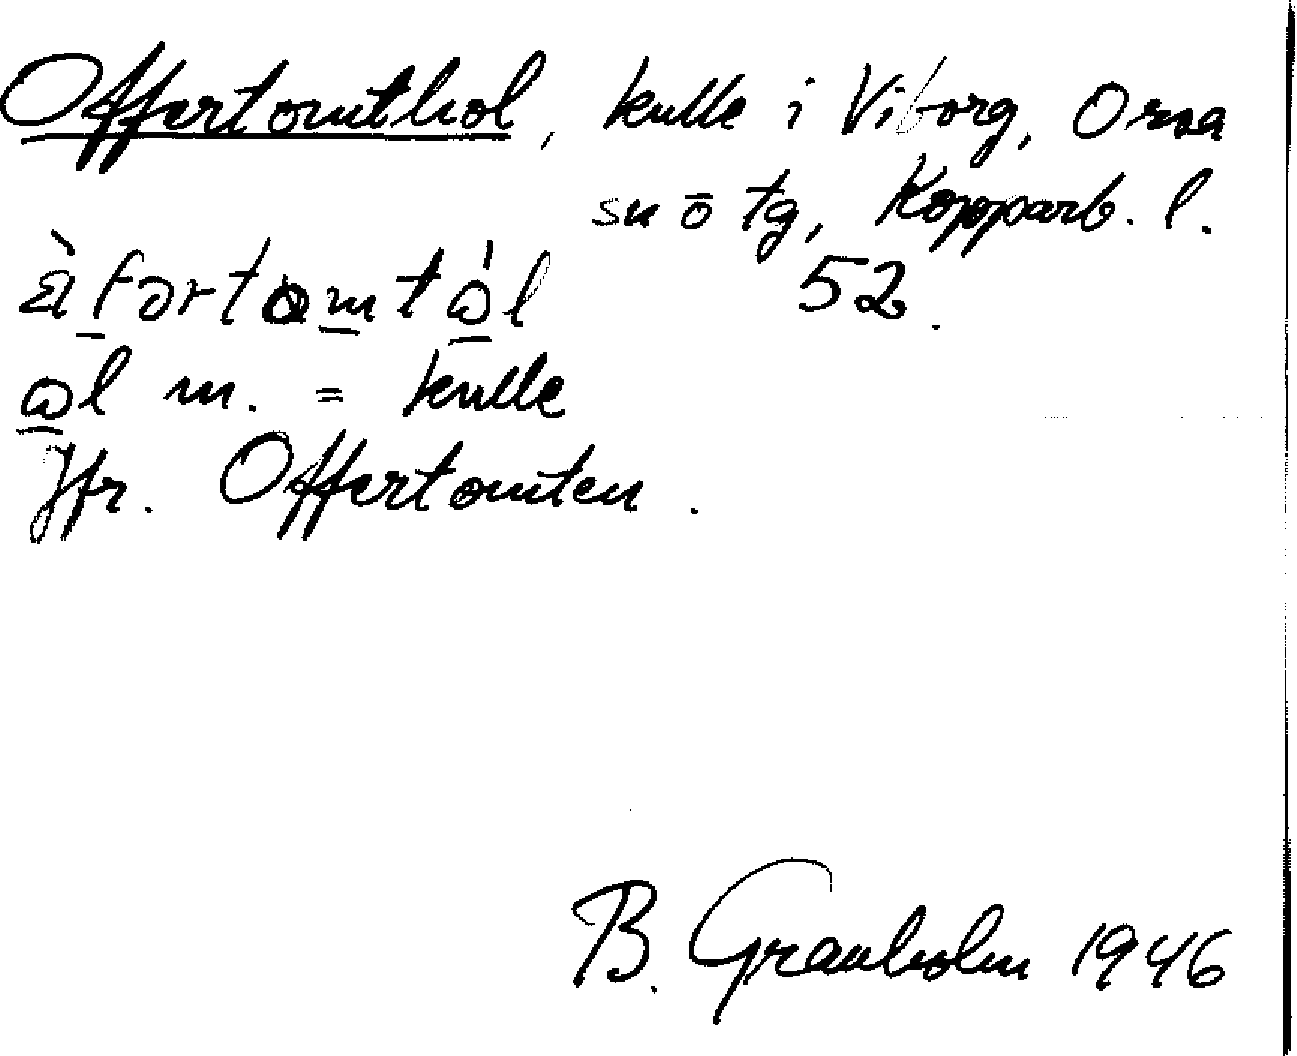 Offertomthol, kulle i Viborg, Orsa
sn ö tg, Kopparb. l.
52.
ɷl m. = kulle
Jfr. Offertomten.
B. Granholm 1946